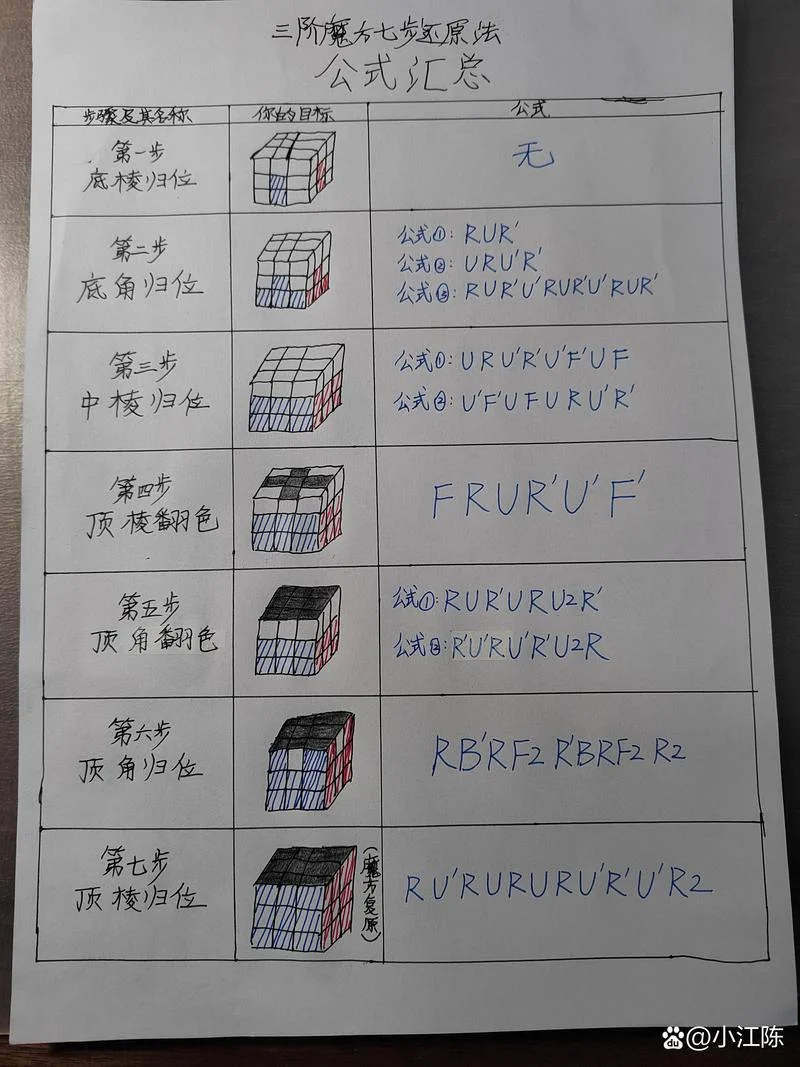 三阶魔方七步还原法
公式汇总
步骤及其名称 你的目标 公式
第一步
底棱归位
无
第二步
底角归位
公式①: RUR'
公式②: URU'R'
公式③: RUR'U'RUR'U'RUR'
第三步
中棱归位
公式①: URU'R'U'F'UF
公式②: U'F'UFURU'R'
第四步
顶棱翻色
FRUR'U'F'
第五步
顶角翻色
公式①: RUR'URU2R'
公式②: R'U'RU'R'U2R
第六步
顶角归位
RB'RF2R'BRF2R2
第七步
顶棱归位
(魔方复原)
RU'RURURU'R'U'R2
Baidu@小江陈